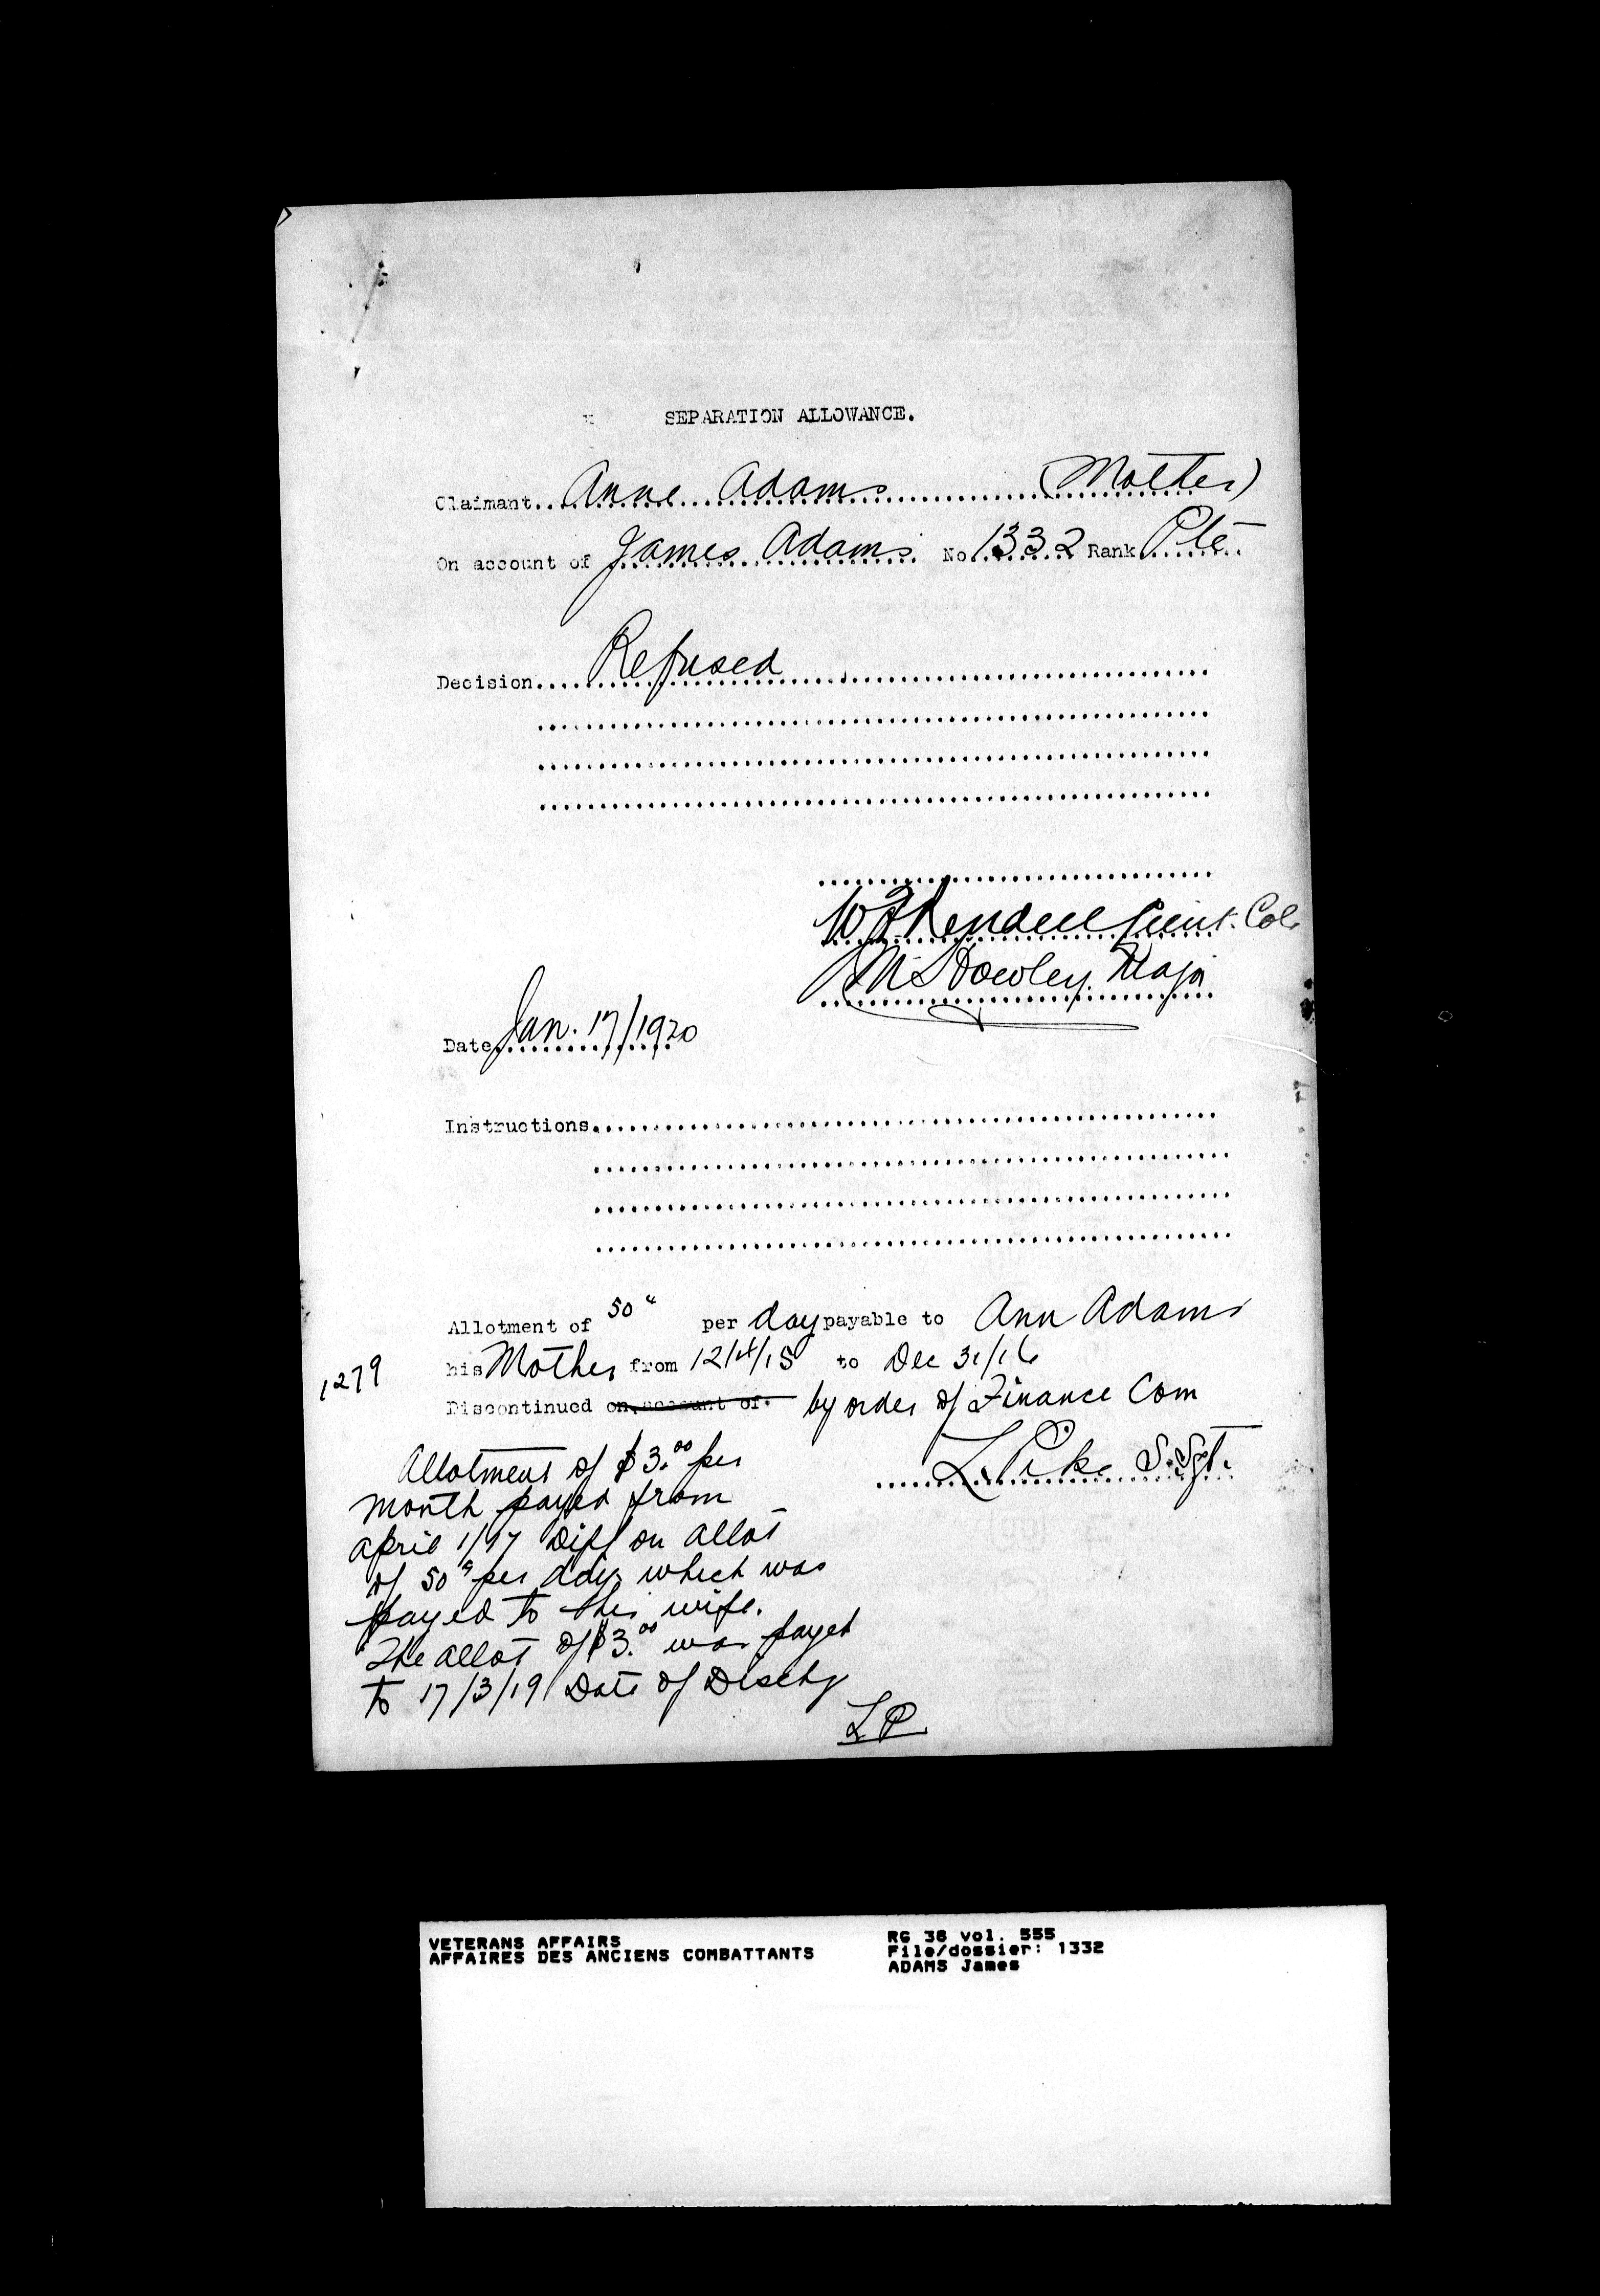 SEPARATION ALLOWANCE.
Claimant.. Anne Adams (Mother)
On account of James Adams No. 1332 Rank Pte
Decision.... Refused
W F Rendell Lieut. Col.
M S Howley, Major
Date Jan. 17/1920
Instructions.
Allotment of 50¢ per day payable to Ann Adams
1279
his Mother from 12/4/15 to Dec 31/16
Discontinued on account of. by order of Finance Com
L Pike S. Sgt.
Allotment of $3.00 per
month payed from
April 1/17 Diff on allot
of 50¢ per day which was
payed to his wife.
The allot of $3.00 was payed
to 17/3/19 Date of Dischg
LP
VETERANS AFFAIRS
AFFAIRES DES ANCIENS COMBATTANTS
RG 38 vol. 555
File/dossier: 1332
ADAMS James